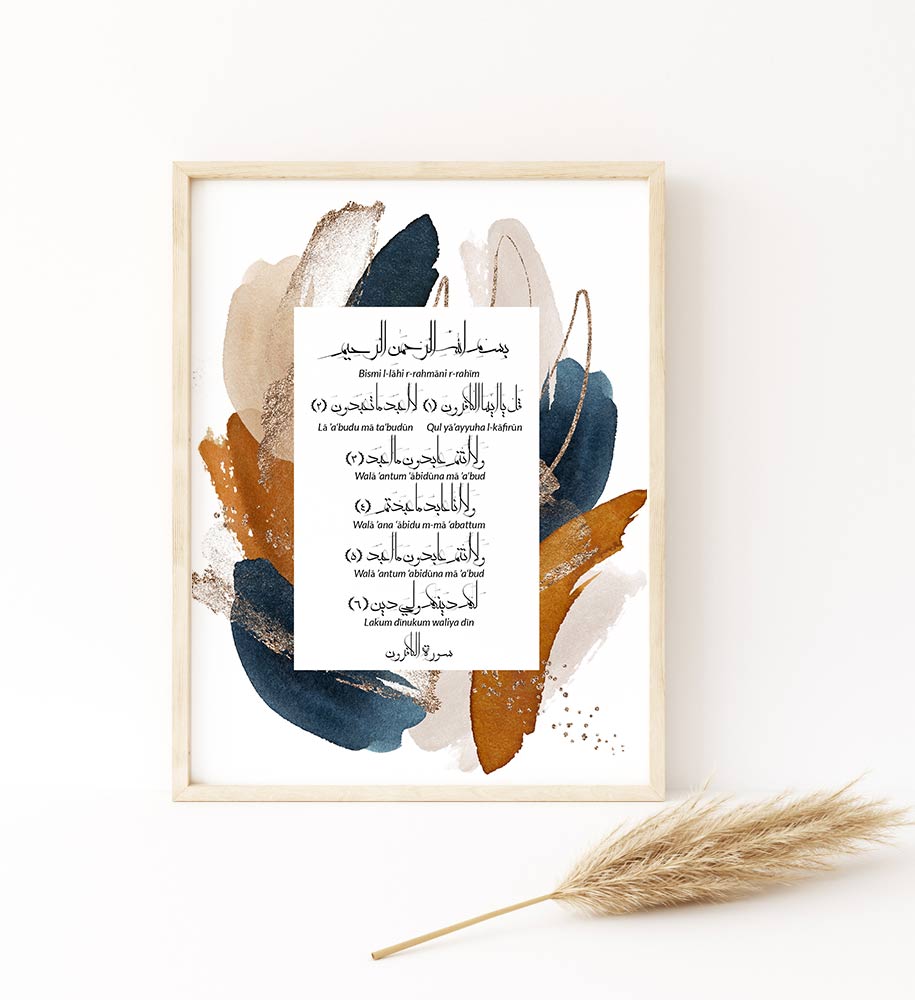 بسم الله الرحمن الرحيم
Bismi l-lāhi r-rahmāni r-rahīm
قل يا أيها الكافرون (١) لا أعبد ما تعبدون (٢)
Lā 'a'budu mā ta'budūn Qul yā'ayyuha l-kāfirūn
ولا أنتم عابدون ما أعبد (٣)
Walā 'antum 'ābidūna mā 'a'bud
ولا أنا عابد ما عبدتم (٤)
Walā 'ana 'ābidu m-mā 'abattum
ولا أنتم عابدون ما أعبد (٥)
Walā 'antum 'abidūna mā 'a'bud
لكم دينكم ولي دين (٦)
Lakum dīnukum waliya dīn
سورة الكافرون